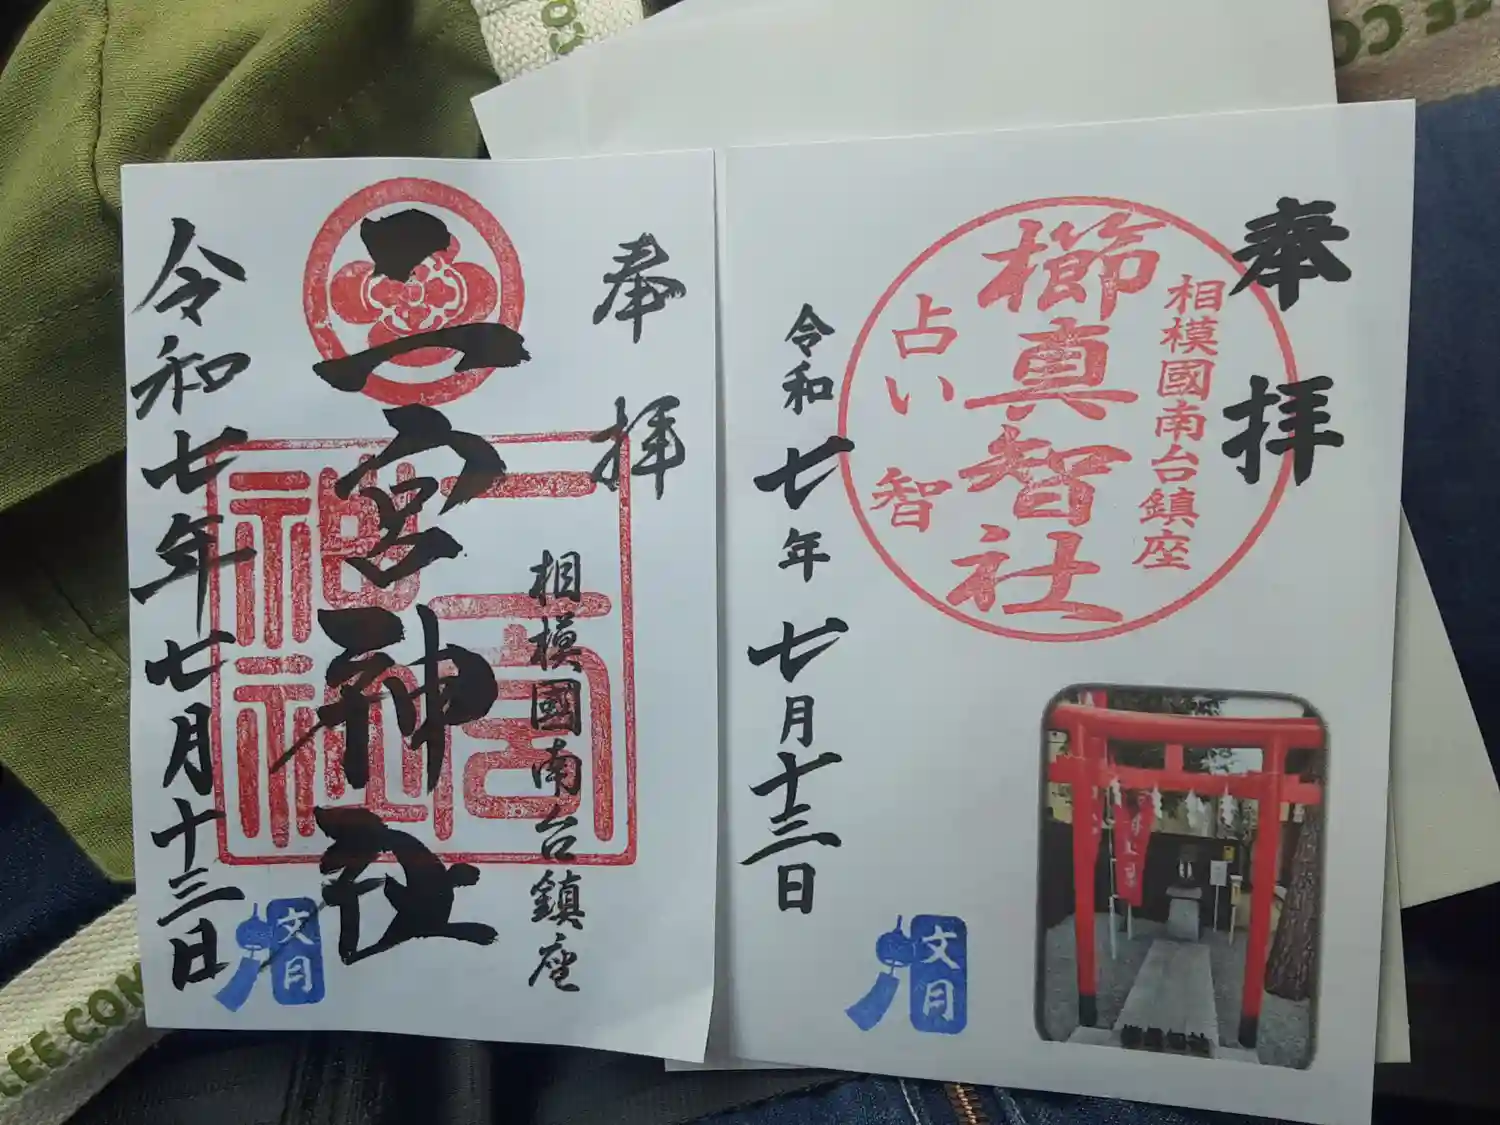 奉拝
二宮神社
相模國南台鎮座
二宮神社
令和七年七月十三日
文月
奉拝
相模國南台鎮座
櫛真智社
占い
智
令和七年七月十三日
文月
櫛真智社
LEE CON